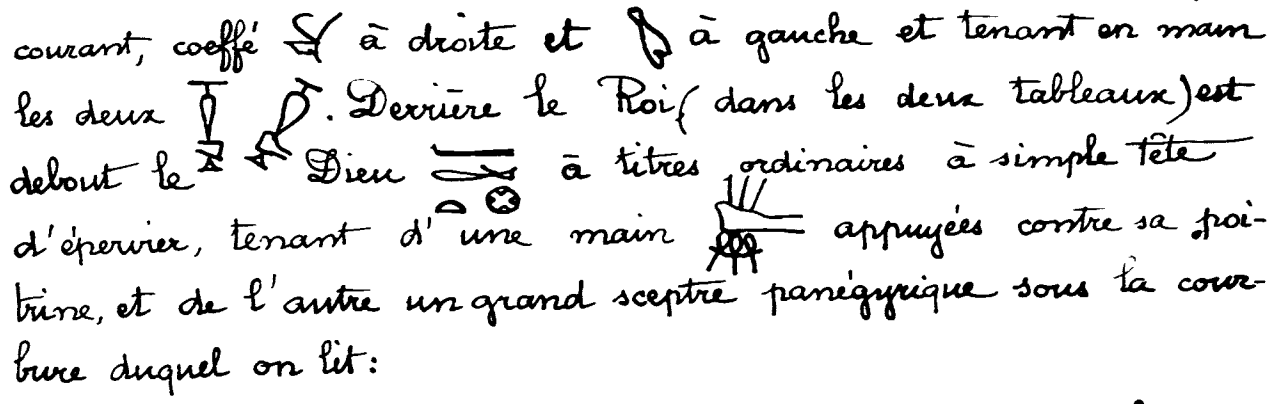 courant, coeffé à droite et à gauche et tenant en main
les deux . Derrière le Roi (dans les deux tableaux) est
debout le Dieu à titres ordinaires à simple Tête
d'épervier, tenant d'une main appuyées contre sa poi-
trine, et de l'autre un grand sceptre panégyrique sous la cour-
bure duquel on lit: